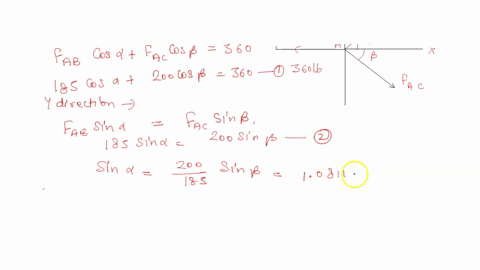 F_AB Cos α + F_AC Cos β = 360
185 Cos α + 200 cos β = 360 — ①
360 lb
x
β
F_AC
Y direction →
F_AB Sin α = F_AC Sin β,
185 Sin α = 200 Sin β — ②
Sin α = 200/185 Sin β = 1.081